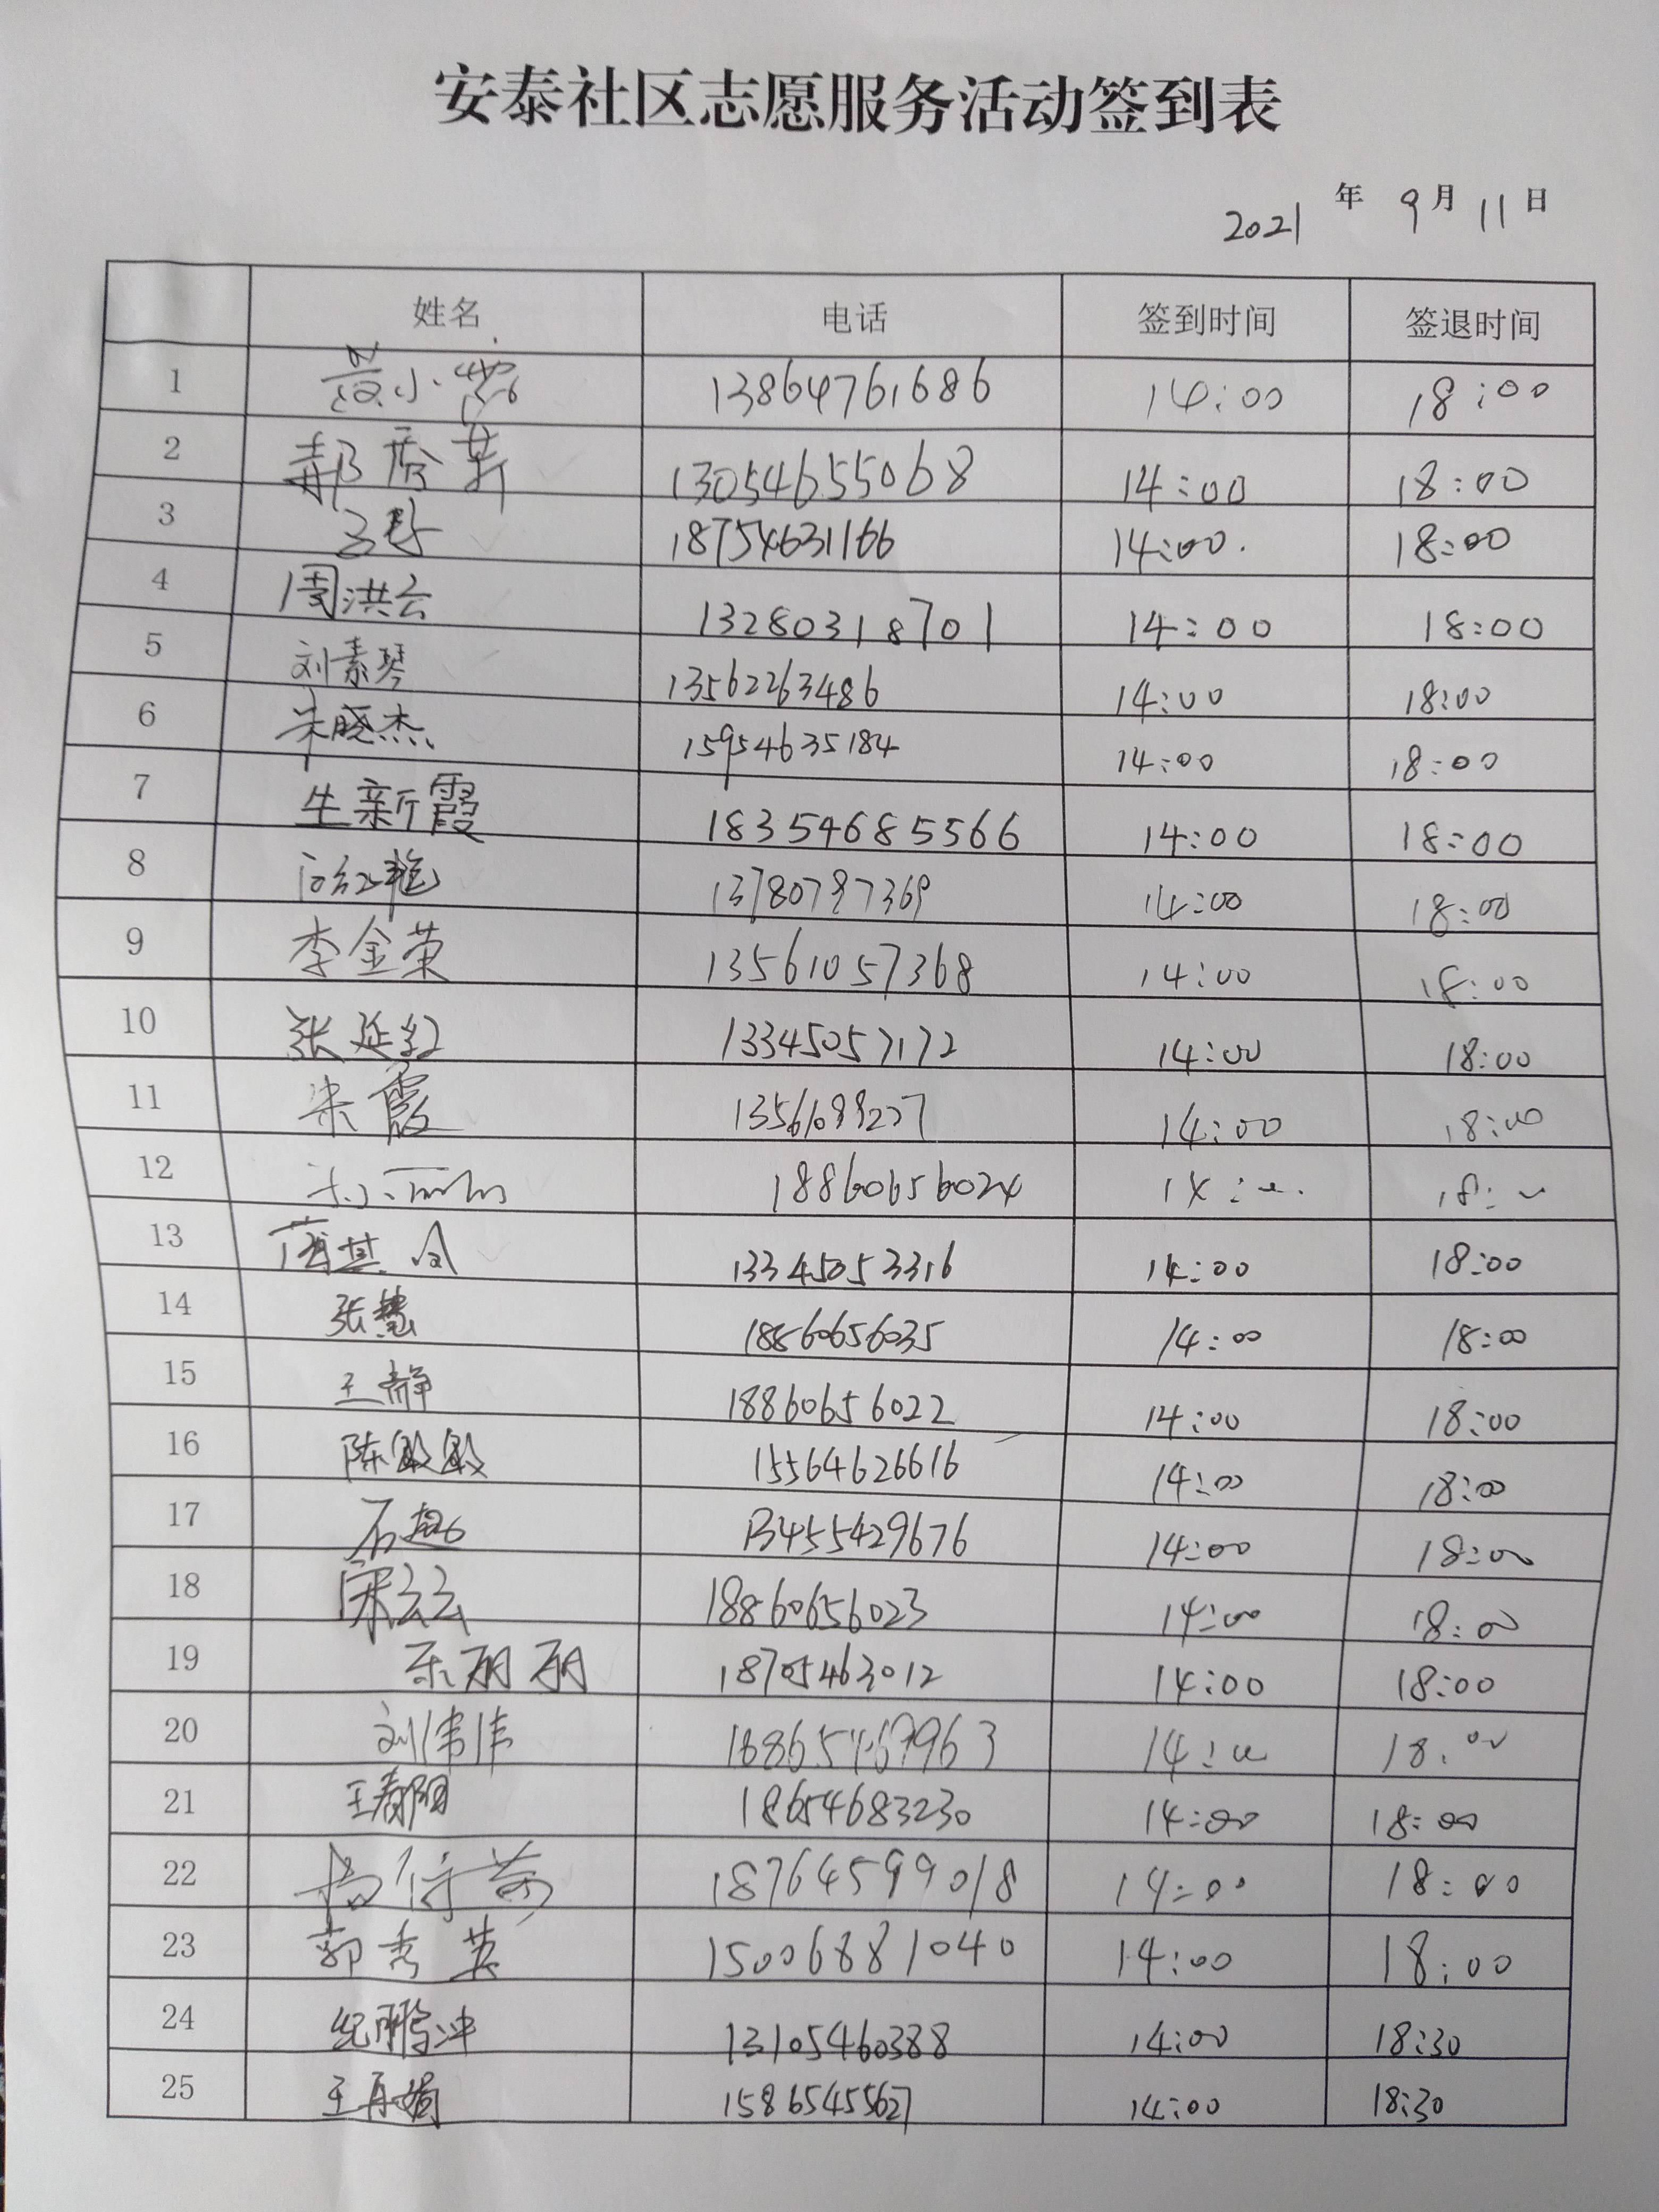 安泰社区志愿服务活动签到表
2021 年 9 月 11 日
姓名 电话 签到时间 签退时间
1 13864761686 14:00 18:00
2 郝秀英 13054655068 14:00 18:00
3 18754631166 14:00. 18:00
4 周洪云 13280318701 14:00 18:00
5 刘素琴 13562263486 14:00 18:00
6 朱晓杰 15954635184 14:00 18:00
7 牛新霞 18354685566 14:00 18:00
8 13780787369 14:00 18:00
9 李金荣 13561057368 14:00 18:00
10 张延红 13345057172 14:00 18:00
11 朱霞 14:00 18:00
12 18860656024
13 13345053316 14:00 18:00
14 张慧 18860656035 14:00 18:00
15 王静 18860656022 14:00 18:00
16 陈敏敏 15564626616 14:00 18:00
17 石超 13455429676 14:00 18:00
18 宋云云 18860656023 14:00 18:00
19 东丽丽 18705463012 14:00 18:00
20 刘伟伟 14:00 18:00
21 王春阳 18654683230 14:00 18:00
22 18764599018 14:00 18:00
23 郭秀英 15006881040 14:00 18:00
24 纪鹏冲 13105460388 14:00 18:30
25 王再娟 15865455627 14:00 18:30